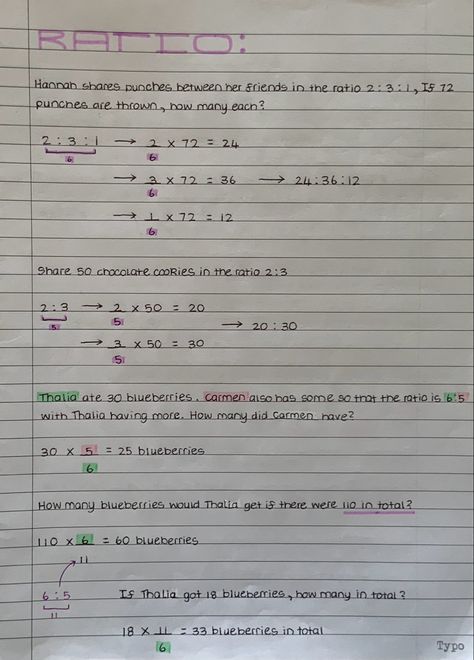 RATIO:
Hannah shares punches between her friends in the ratio 2:3:1, If 72
punches are thrown, how many each?
2 : 3 : 1 → 2/6 × 72 = 24
6
→ 3/6 × 72 = 36 → 24:36:12
→ 1/6 × 72 = 12
Share 50 chocolate cookies in the ratio 2:3
2:3 → 2/5 × 50 = 20
5
→ 20:30
→ 3/5 × 50 = 30
Thalia ate 30 blueberries. Carmen also has some so that the ratio is 6:5
with Thalia having more. How many did Carmen have?
30 × 5/6 = 25 blueberries
How many blueberries would Thalia get if there were 110 in total?
110 × 6/11 = 60 blueberries
6:5
11
If Thalia got 18 blueberries, how many in total?
18 × 11/6 = 33 blueberries in total
Typo